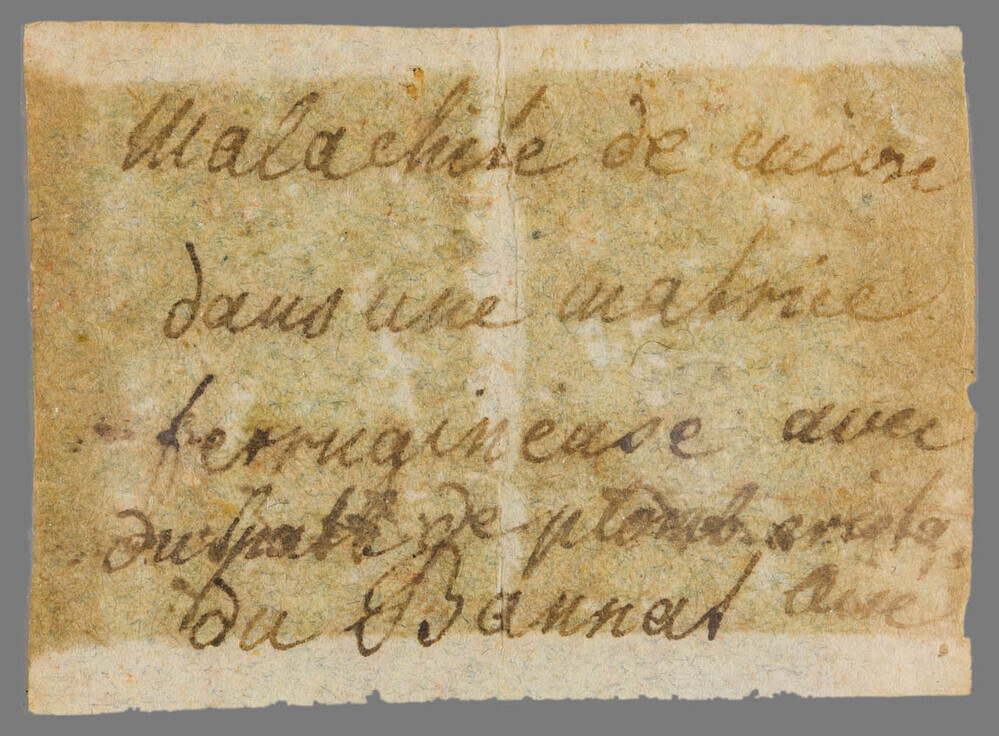 Malachite de cuivre
dans une matrice
ferrugineuse avec
du spath de plomb
du Bannat